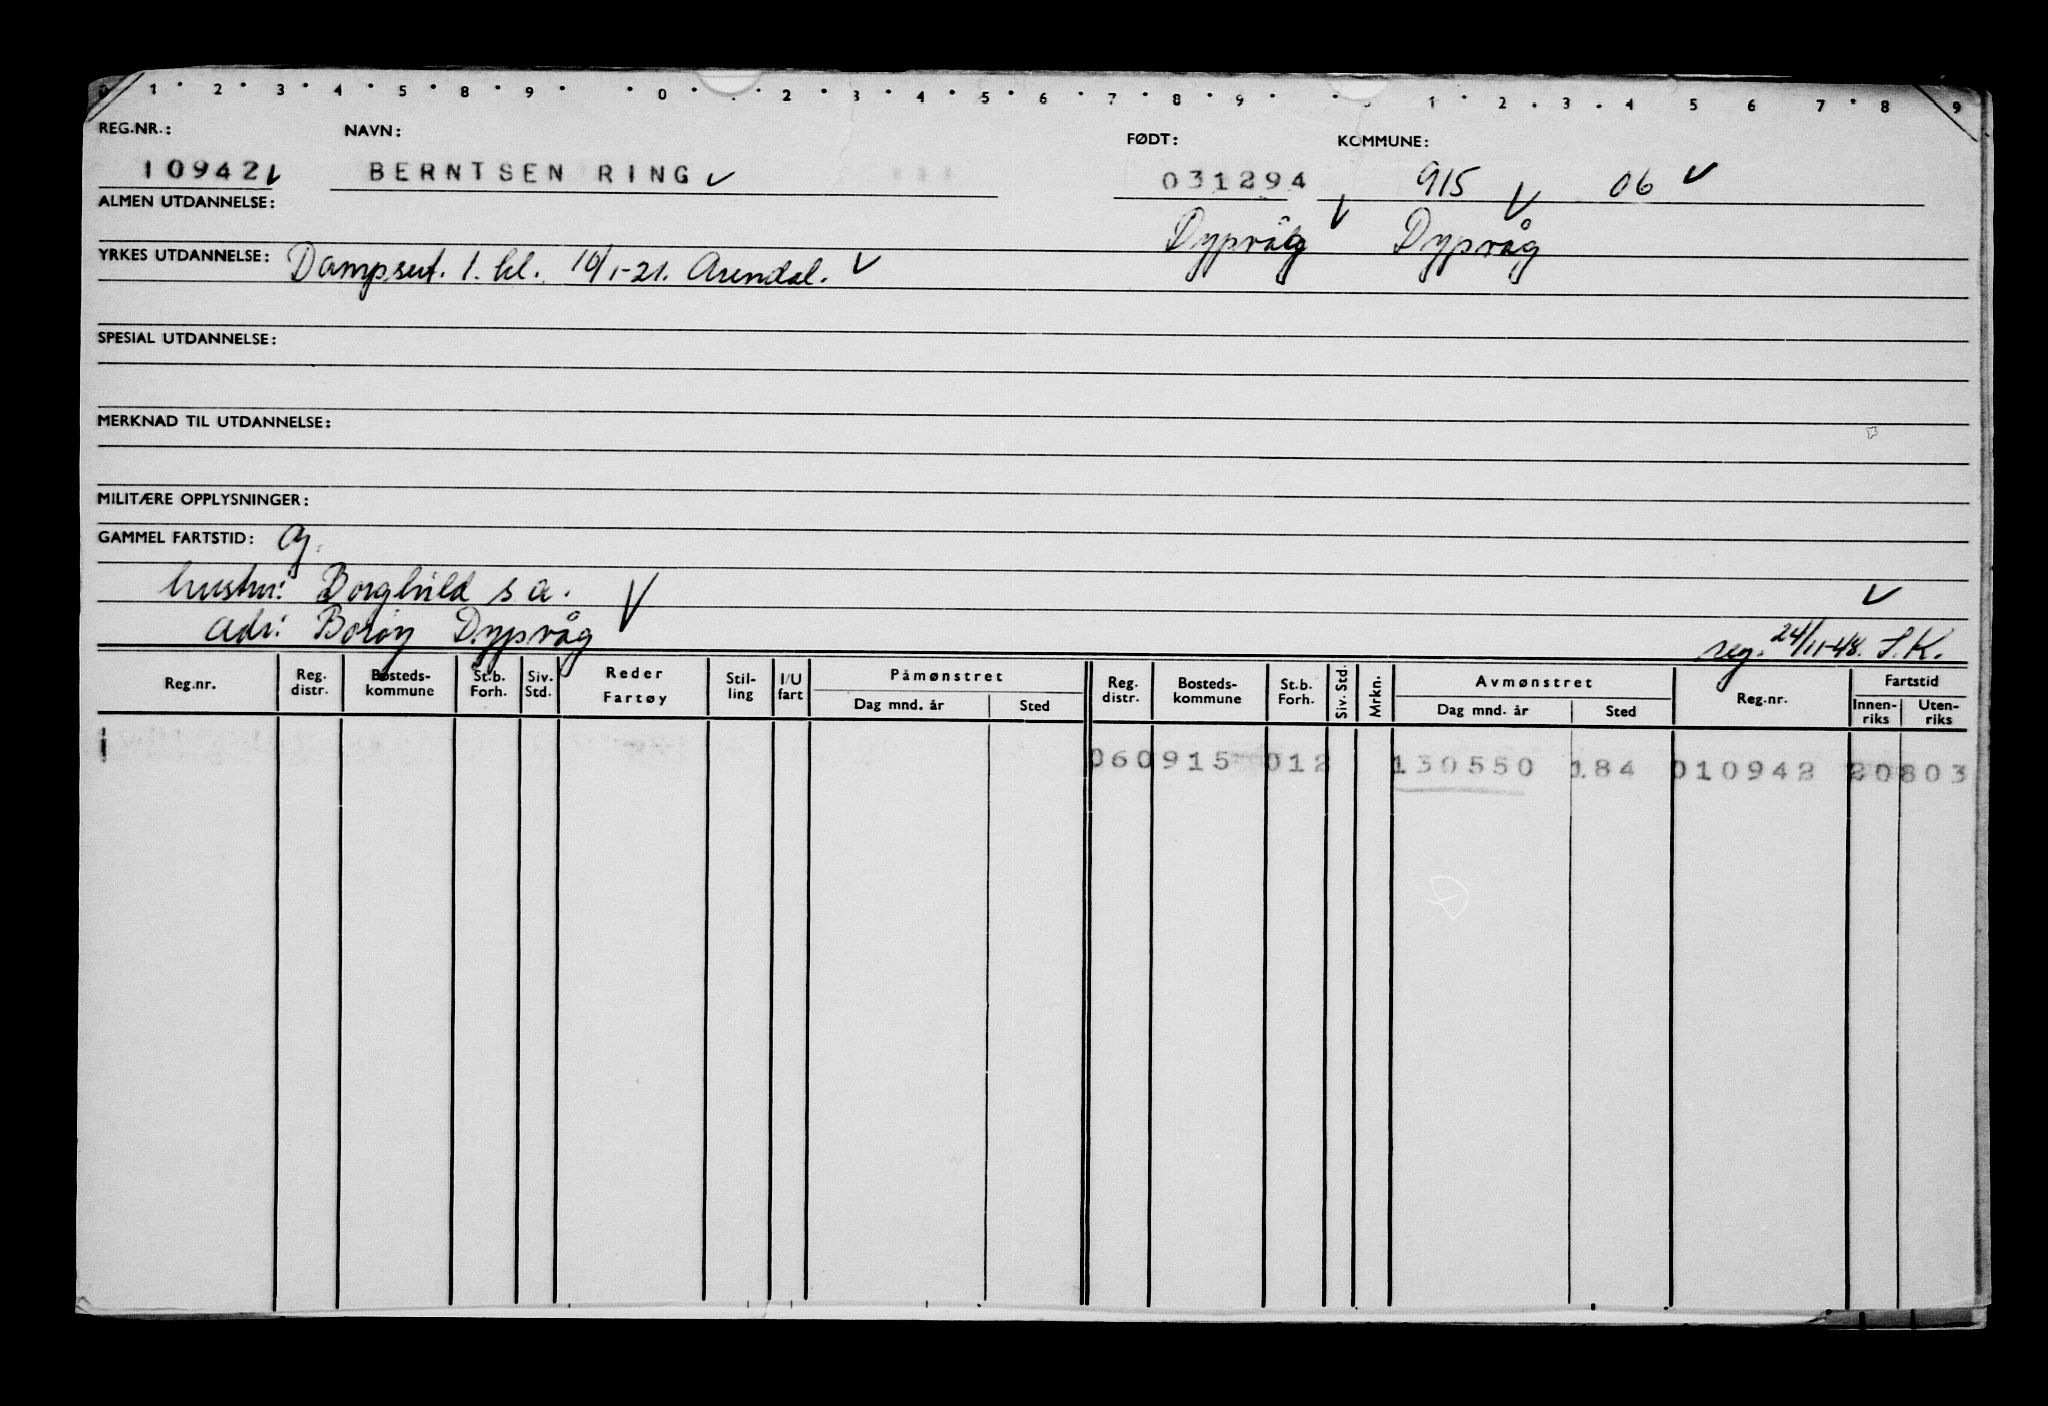 0 1 2 3 4 5 8 9 0 2 3 4 5 6 7 8 9 1 2 3 4 5 6 7 8 9
REG.NR.: NAVN: FØDT: KOMMUNE:
10942 BERNTSEN RING 031294 915 06
ALMEN UTDANNELSE: Dypvåg Dypvåg
YRKES UTDANNELSE: Dampsert. 1. kl. 10/1-21. Arendal.
SPESIAL UTDANNELSE:
MERKNAD TIL UTDANNELSE:
MILITÆRE OPPLYSNINGER:
GAMMEL FARTSTID:
hustru: Borghild s a.
adr: Borøy Dypvåg reg. 24/11-48. S.K.
Reg.nr. Reg. distr. Bosteds-kommune St.b. Forh. Siv. Std. Reder Fartøy Stil-ling I/U fart Påmønstret Dag mnd. år Sted Reg. distr. Bosteds-kommune St.b. Forh. Siv. Std. Mrkn. Avmønstret Dag mnd. år Sted Reg.nr. Fartstid Innen-riks Uten-riks
060915 012 130550 184 010942 20803